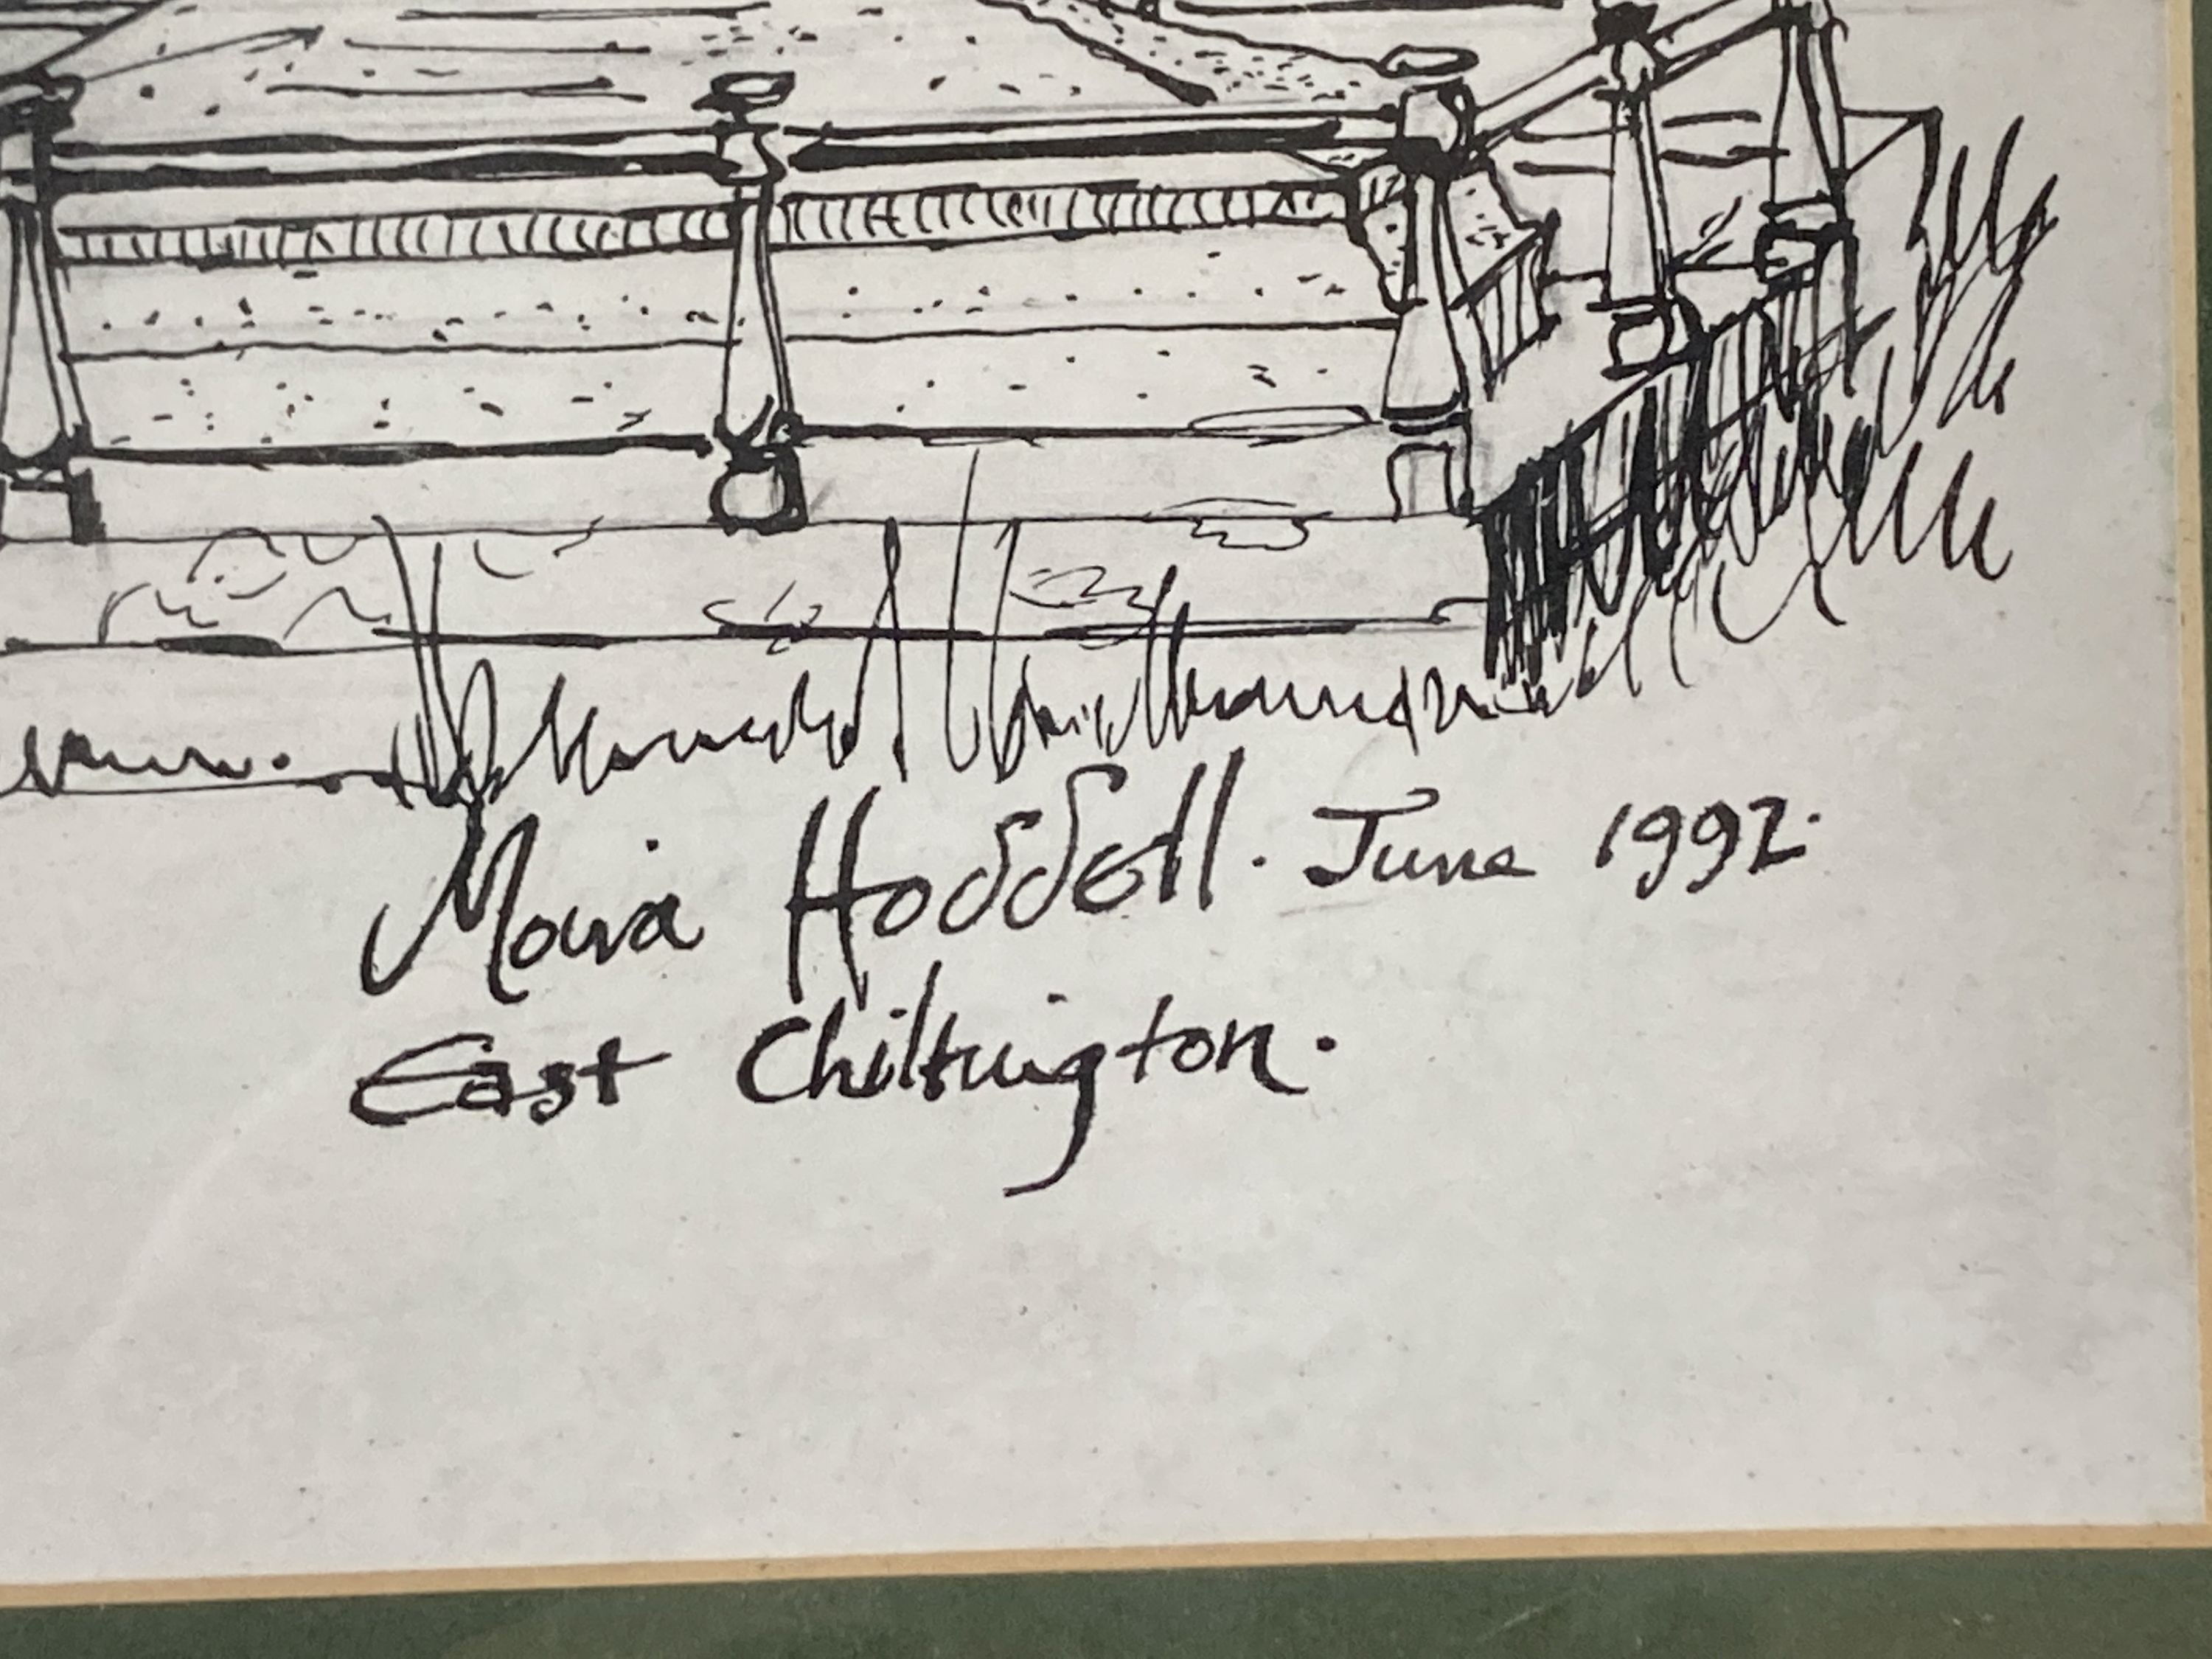 Moira Hoddell. June 1992.
East Chiltington.